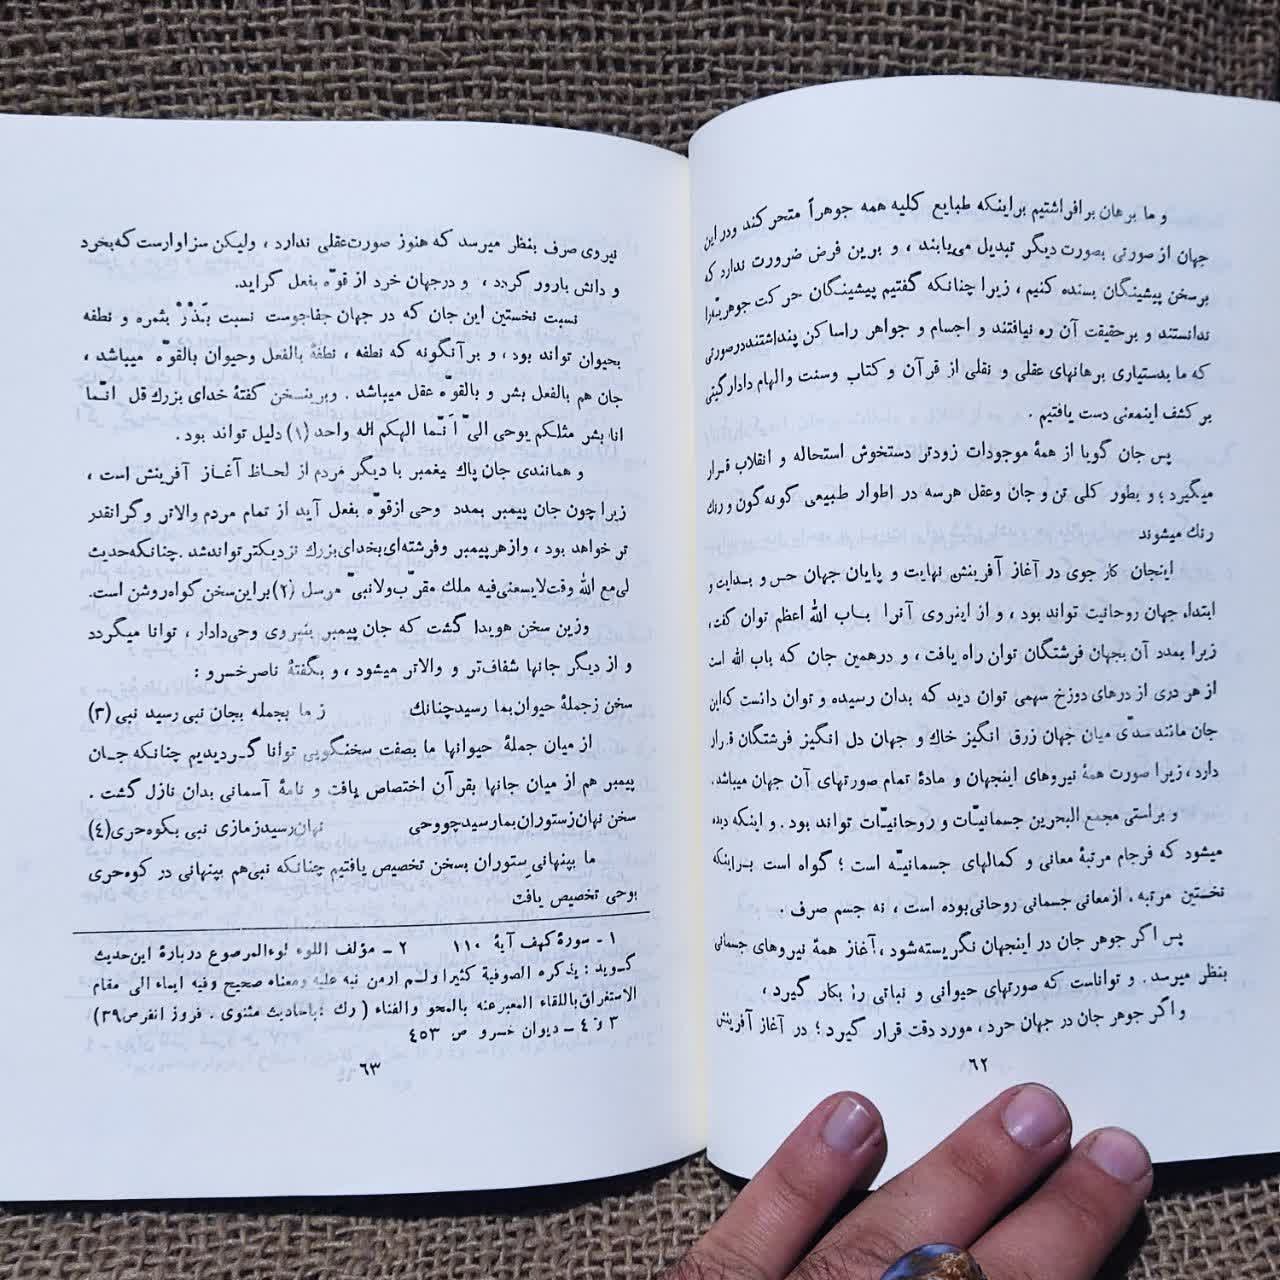 و ما برهان برافراشتیم براینکه طبایع کلیه همه جوهراً متحرکند ودراین
جهان ازصورتی بصورت دیگر تبدیل می‌یابند ، و برین فرض ضرورت ندارد که
برسخن پیشینگان بسنده کنیم ، زیرا چنانکه گفتیم پیشینگان حرکت جوهریّه‌را
ندانستند و برحقیقت آن ره نیافتند و اجسام و جواهر راساکن پنداشتنددرصورتی
که ما بدستیاری برهانهای عقلی و نقلی از قرآن و کتاب وسنت والهام دادارگیتی
بر کشف اینمعنی دست یافتیم .
پس جان گویا از همهٔ موجودات زودتر دستخوش استحاله و انقلاب قرار
میگیرد ؛ و بطور کلی تن و جان وعقل هرسه در اطوار طبیعی گونه گون و رنك
رنك میشوند
اینجان کاز جوی در آغاز آفرینش نهایت و پایان جهان حس و بدایت و
ابتداء جهان روحانیت تواند بود ، و از اینروی آنرا بـاب الله اعظم توان گفت ،
زیرا بمدد آن بجهان فرشتگان توان راه یافت ، و درهمین جان که باب الله است
از هر دری از درهای دوزخ سهمی توان دید که بدان رسیده و توان دانست که‌این
جان مانند سدّی میان جهان زرق انگیز خاك و جهان دل انگیز فرشتگان قرار
دارد ، زیرا صورت همهٔ نیروهای اینجهان و مادهٔ تمام صورتهای آن جهان میباشد.
و براستی مجمع البحرین جسمانیّات و روحانیّات تواند بود . و اینکه دیده
میشود که فرجام مرتبهٔ معانی و کمالهای جسمانیّه است ؛ گواه است بـراینکه
نخستین مرتبه ، ازمعانی جسمانی روحانی‌بوده است ، نه جسم صرف .
پس اگر جوهر جان در اینجهان نگریسته‌شود ، آغاز همهٔ نیروهای جسمانی
بنظر میرسد. و تواناست که صورتهای حیوانی و نباتی را بکار گیرد ،
واگر جوهر جان در جهان خرد ، مورد دقت قرار گیرد ؛ در آغاز آفرینش
٦٢
نیروی صرف بنظر میرسد که هنوز صورت‌عقلی ندارد ، ولیکن سزاوارست که‌بخرد
و دانش بارور گردد ، و درجهان خرد از قوّه بفعل گراید.
نسبت نخستین این جان که در جهان جفاجوست نسبت بَذْرْ بثمره و نطفه
بحیوان تواند بود ، و برآنگونه که نطفه ، نطفهٔ بالفعل وحیوان بالقوّه میباشد ،
جان هم بالفعل بشر و بالقوّه عقل میباشد . وبرینسخن گفتهٔ خدای بزرك قل انّما
انا بشر مثلکم یوحی الیّ اَنّما الهکم اله واحد (١) دلیل تواند بود .
و همانندی جان پاك پیغمبر با دیگر مردم از لحاظ آغاز آفرینش است ،
زیرا چون جان پیمبر بمدد وحی ازقوّه بفعل آید از تمام مردم والاتر وگرانقدر
تر خواهد بود ، وازهرپیمبر وفرشته‌ای‌بخدای‌بزرك نزدیکتر تواندشد .چنانکه‌حدیث
لی‌مع الله وقت‌لایسعنی‌فیه ملك مقرّب‌ولانبیّ مرسل (٢) براین‌سخن گواه‌روشن است.
وزین سخن هویدا گشت که جان پیمبر بنیروی وحی‌دادار ، توانا میگردد
و از دیگر جانها شفاف‌تر و والاتر میشود ، و بگفتهٔ ناصرخسرو :
سخن زجملهٔ حیوان‌بما رسیدچنانك ز ما بجمله بجان نبی رسید نبی (٣)
از میان جملهٔ حیوانها ما بصفت سخنگویی توانا گـردیدیم چنانکه جـان
پیمبر هم از میان جانها بقرآن اختصاص یافت و نامهٔ آسمانی بدان نازل گشت .
سخن نهان‌زستوران‌بمارسیدچووحی نهان‌رسیدزمازی نبی بکوه‌حری(٤)
ما بپنهانی ستوران بسخن تخصیص یافتیم چنانکه نبی‌هم بپنهانی در کوه‌حری
بوحی تخصیص یافت
١ - سورهٔ کهف آیهٔ ١١٠ ٢ - مؤلف اللوء لوءالمرصوع دربارهٔ این‌حدیث
گوید : یذکره الصوفیة کثیرا ولم ارمن نبه علیه ومعناه صحیح وفیه ایماء الی مقام
الاستغراق‌باللقاء المعبرعنه بالمحو والفناء ( رك : باحادیث مثنوی . فروز انفرص٣٩)
٣ و ٤ - دیوان خسرو ص ٤٥٣
٦٣